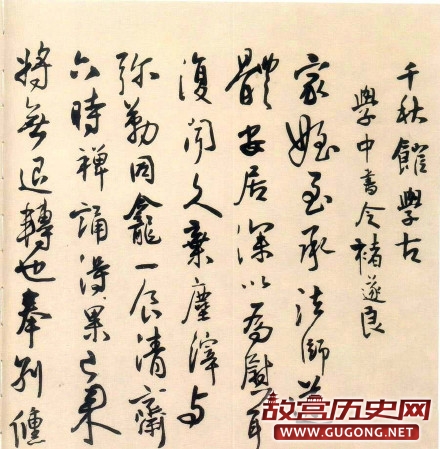 千秋館學古
學中書令褚遂良
家姪至承法師道
體安居深以為慰耳
復聞久棄塵滓与
弥勒同龕一食清齋
六時禅誦得果已來
將無退轉也奉別倏
故宫历史网
www.GUGONG.net